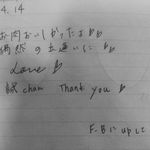 4.14
お肉おいしかったよ♭♭
偶然の出逢いに♭
Love♭
cham Thank you ♭
F.Bにupして